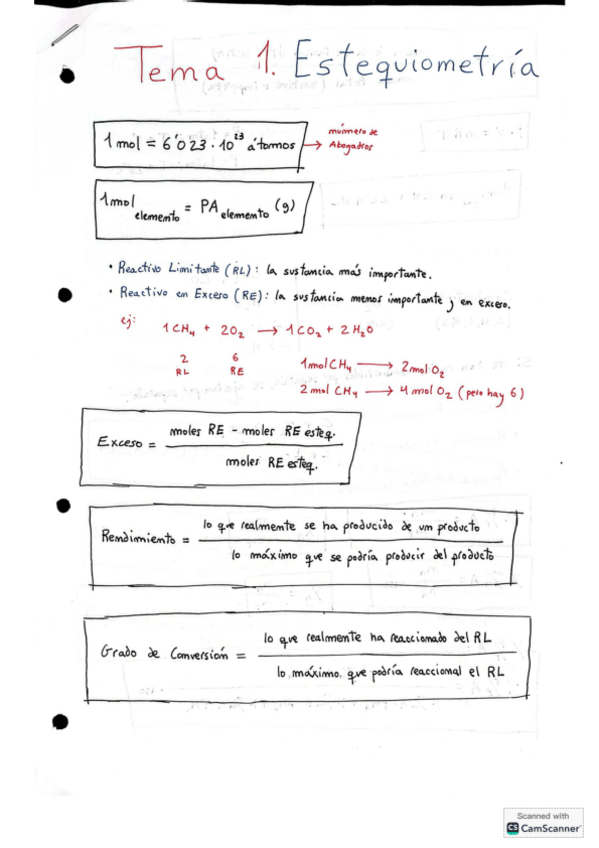 Tema 1. Estequiometría
1 mol = 6'023 · 10²³ átomos → número de Abogadros
1 mol elemento = PA elemento (g)
• Reactivo Limitante (RL): la sustancia más importante.
• Reactivo en Exceso (RE): la sustancia menos importante y en exceso.
ej:
1 CH₄ + 2O₂ → 1 CO₂ + 2 H₂O
2 6 1 mol CH₄ → 2 mol O₂
RL RE
2 mol CH₄ → 4 mol O₂ (pero hay 6)
Exceso = moles RE - moles RE esteq.
moles RE esteq.
Rendimiento = lo que realmente se ha producido de un producto
lo máximo que se podría producir del producto
Grado de Conversión = lo que realmente ha reaccionado del RL
lo máximo que podría reaccional el RL
Scanned with
CS CamScanner